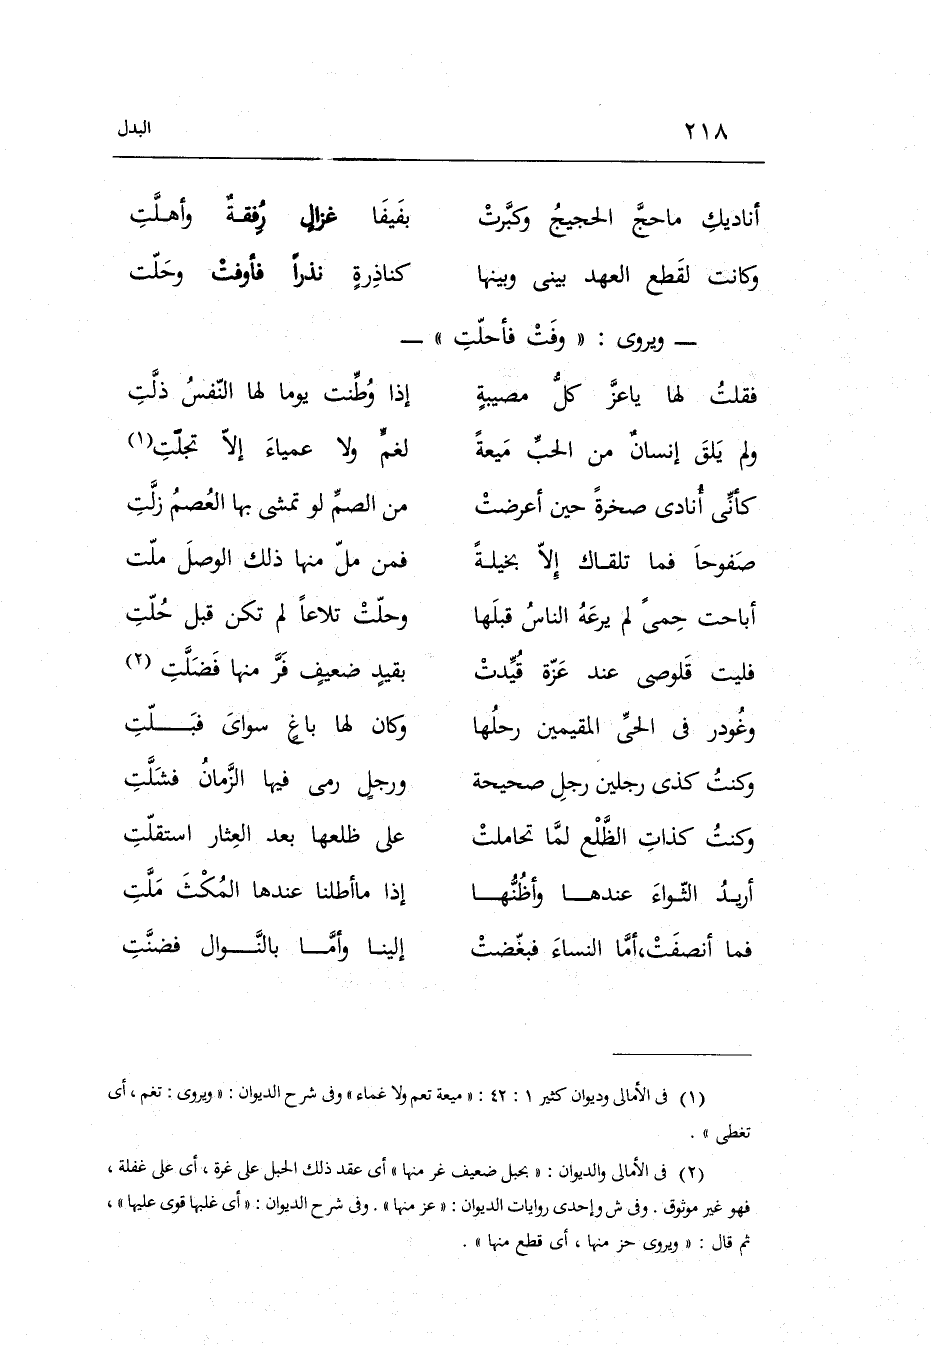 ٢١٨ البدل
أناديكِ ماحجَّ الحجيجُ وكبَّرتْ بفَيفَا غزالٍ رُفقةٌ وأهلَّتِ
وكانت لقَطع العهد بينى وبينها كناذِرةٍ نذراً فأوفتْ وحَلّت
— ويروى : « وفَتْ فأحلّتِ » —
فقلتُ لها ياعزَّ كلُّ مصيبةٍ إذا وُطِّنت يوما لها النّفسُ ذلَّتِ
ولم يَلقَ إنسانٌ من الحبِّ مَيعةً لغمٍّ ولا عمياءَ إلاّ تجلّتِ(١)
كأنِّى أُنادى صخرةً حين أعرضتْ من الصمِّ لو تمشى بها العُصمُ زلَّتِ
صَفوحاً فما تلقاك إِلاّ بخيلةً فمن ملّ منها ذلك الوصلَ ملّت
أباحت حِمىً لم يرعَهُ الناسُ قبلَها وحلّتْ تلاعاً لم تكن قبل حُلّتِ
فليت قَلوصى عند عَزّة قُيِّدتْ بقيدٍ ضعيفٍ فَرَّ منها فَضَلَّتِ (٢)
وغُودر فى الحىِّ المقيمين رحلُها وكان لها باغٍ سواىَ فبَلّتِ
وكنتُ كذى رجلين رجلٍ صحيحة ورجلٍ رمى فيها الزَّمانُ فشَلَّتِ
وكنتُ كذاتِ الظَّلْع لمَّا تحاملتْ على ظلعها بعد العِثار استقلّتِ
أريدُ الثّواءَ عندها وأظُنُّها إذا ماأطلنا عندها المُكْثَ مَلَّتِ
فما أنصفَتْ،أمَّا النساءَ فبغّضتْ إلينا وأمَّا بالنَّوال فضنَّتِ
(١) فى الأمالى وديوان كثير ١ : ٤٢ : « ميعة تعم ولا غماء » وفى شرح الديوان : « ويروى : تغم ، أى
تغطى » .
(٢) فى الأمالى والديوان : « بحبل ضعيف غر منها » أى عقد ذلك الحبل على غرة ، أى على غفلة ،
فهو غير موثوق . وفى ش وإحدى روايات الديوان : « عز منها » . وفى شرح الديوان : « أى غلبها قوى عليها » ،
ثم قال : « ويروى حز منها ، أى قطع منها » .